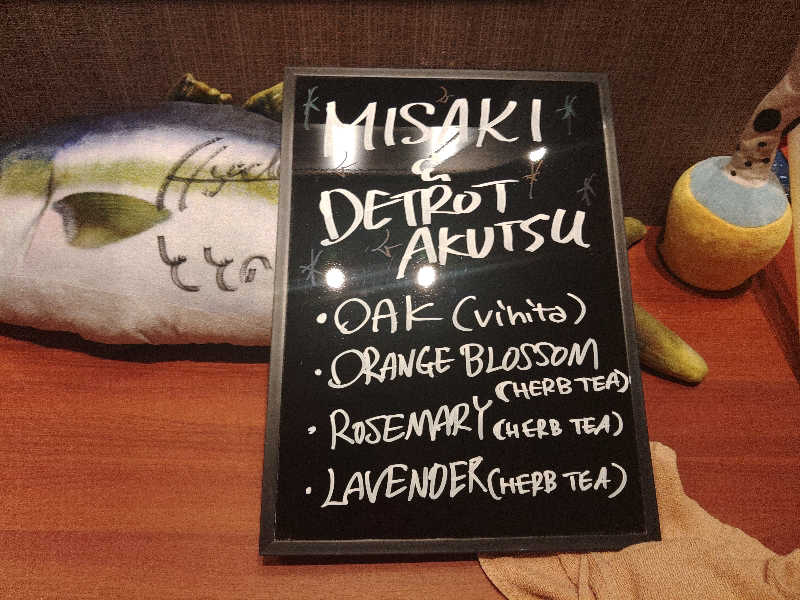 MISAKI
&
DETROT
AKUTSU
・OAK (vihita)
・ORANGE BLOSSOM
(HERB TEA)
・ROSEMARY (HERB TEA)
・LAVENDER (HERB TEA)
ととの